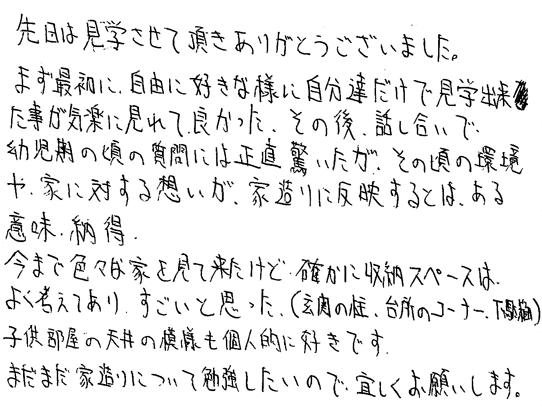 先日は見学させて頂きありがとうございました。
まず最初に、自由に好きな様に自分達だけで見学出来
た事が気楽に見れて良かった、その後、話し合いで、
幼児期の頃の質問には正直驚いたが、その頃の環境
や、家に対する想いが、家造りに反映するとは、ある
意味、納得、
今まで色々な家を見て来たけど、確かに収納スペースは、
よく考えてあり、すごいと思った、(玄関の柱、台所のコーナー、下駄箱)
子供部屋の天井の模様も個人的に好きです、
まだまだ家造りについて勉強したいので、宜しくお願いします。